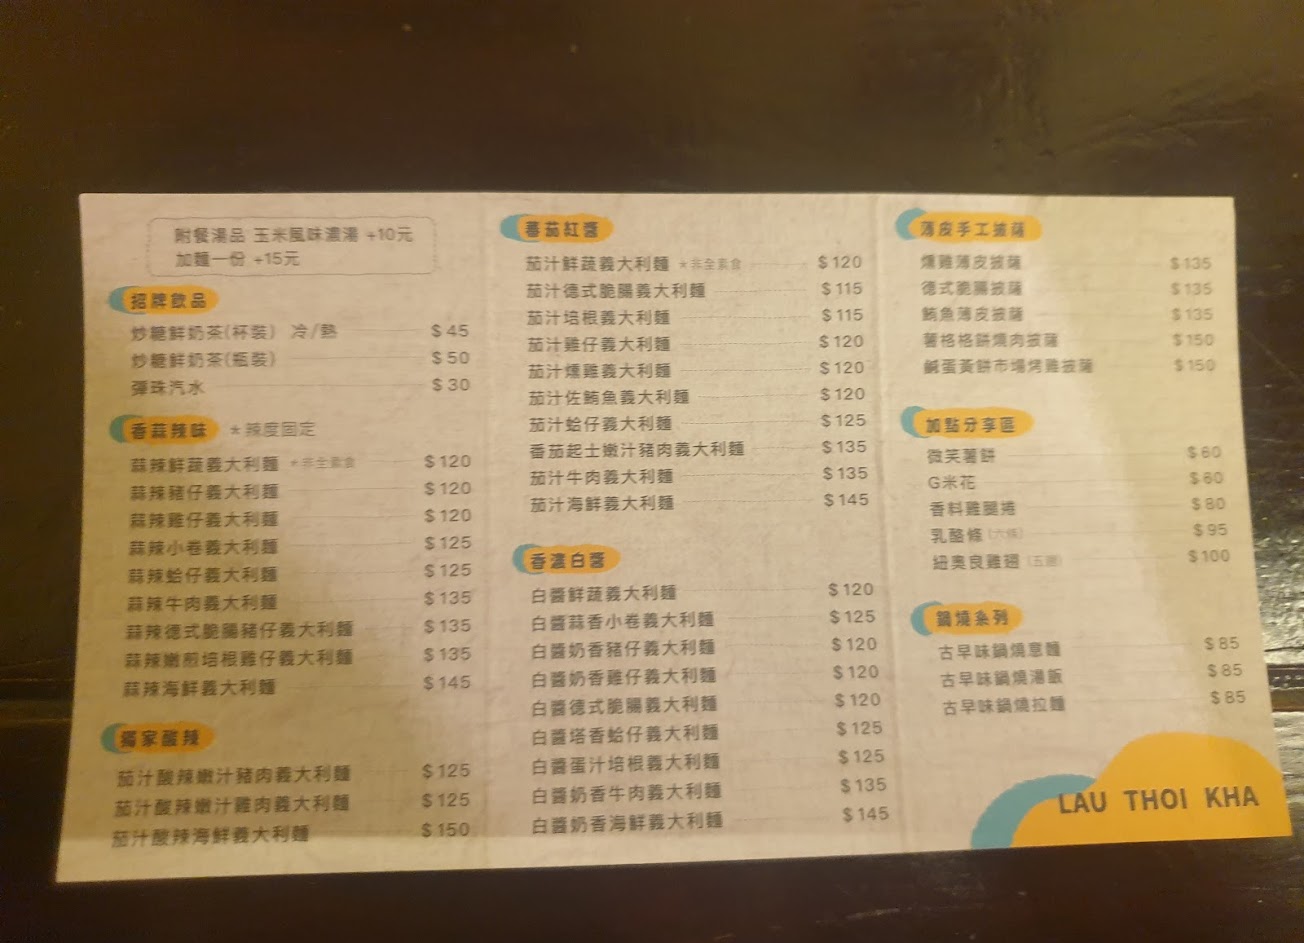 附餐湯品 玉米風味濃湯 +10元
加麵一份 +15元
招牌飲品
炒糖鮮奶茶(杯裝) 冷/熱 $45
炒糖鮮奶茶(瓶裝) $50
彈珠汽水 $30
香蒜辣味 *辣度固定
蒜辣鮮蔬義大利麵 *非全素食 $120
蒜辣豬仔義大利麵 $120
蒜辣雞仔義大利麵 $120
蒜辣小卷義大利麵 $125
蒜辣蛤仔義大利麵 $125
蒜辣牛肉義大利麵 $135
蒜辣德式脆腸豬仔義大利麵 $135
蒜辣嫩煎培根雞仔義大利麵 $135
蒜辣海鮮義大利麵 $145
獨家酸辣
茄汁酸辣嫩汁豬肉義大利麵 $125
茄汁酸辣嫩汁雞肉義大利麵 $125
茄汁酸辣海鮮義大利麵 $150
蕃茄紅醬
茄汁鮮蔬義大利麵 *非全素食 $120
茄汁德式脆腸義大利麵 $115
茄汁培根義大利麵 $115
茄汁雞仔義大利麵 $120
茄汁燻雞義大利麵 $120
茄汁佐鮪魚義大利麵 $120
茄汁蛤仔義大利麵 $125
番茄起士嫩汁豬肉義大利麵 $135
茄汁牛肉義大利麵 $135
茄汁海鮮義大利麵 $145
香濃白醬
白醬鮮蔬義大利麵 $120
白醬蒜香小卷義大利麵 $125
白醬奶香豬仔義大利麵 $120
白醬奶香雞仔義大利麵 $120
白醬德式脆腸義大利麵 $120
白醬塔香蛤仔義大利麵 $125
白醬蛋汁培根義大利麵 $125
白醬奶香牛肉義大利麵 $135
白醬奶香海鮮義大利麵 $145
薄皮手工披薩
燻雞薄皮披薩 $135
德式脆腸披薩 $135
鮪魚薄皮披薩 $135
薯格格餅燒肉披薩 $150
鹹蛋黃餅市場烤雞披薩 $150
加點分享區
微笑薯餅 $60
G米花 $60
香料雞腿捲 $80
乳酪條(六條) $95
紐奧良雞翅 $100
鍋燒系列
古早味鍋燒意麵 $85
古早味鍋燒湯飯 $85
古早味鍋燒拉麵 $85
LAU THOI KHA